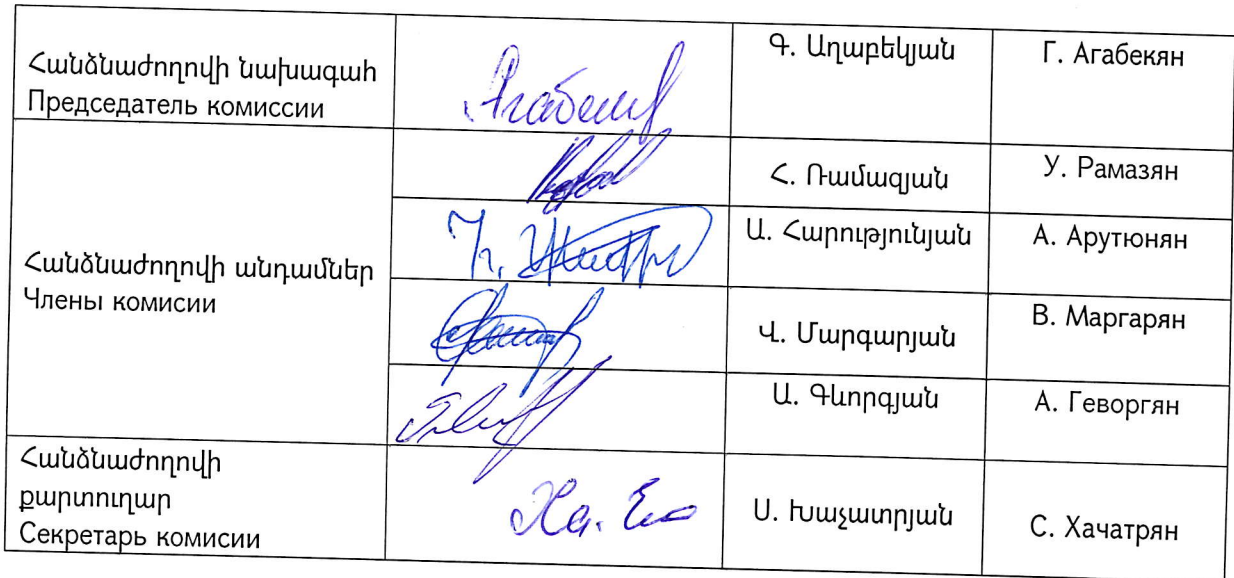 Հանձնաժողովի նախագահ
Председатель комиссии
Գ. Աղաբեկյան
Г. Агабекян
Հ. Ռամազյան
У. Рамазян
Հանձնաժողովի անդամներ
Члены комисии
Ա. Հարությունյան
А. Арутюнян
Վ. Մարգարյան
В. Маргарян
Ա. Գևորգյան
А. Геворгян
Հանձնաժողովի
քարտուղար
Секретарь комисии
Ս. Խաչատրյան
С. Хачатрян